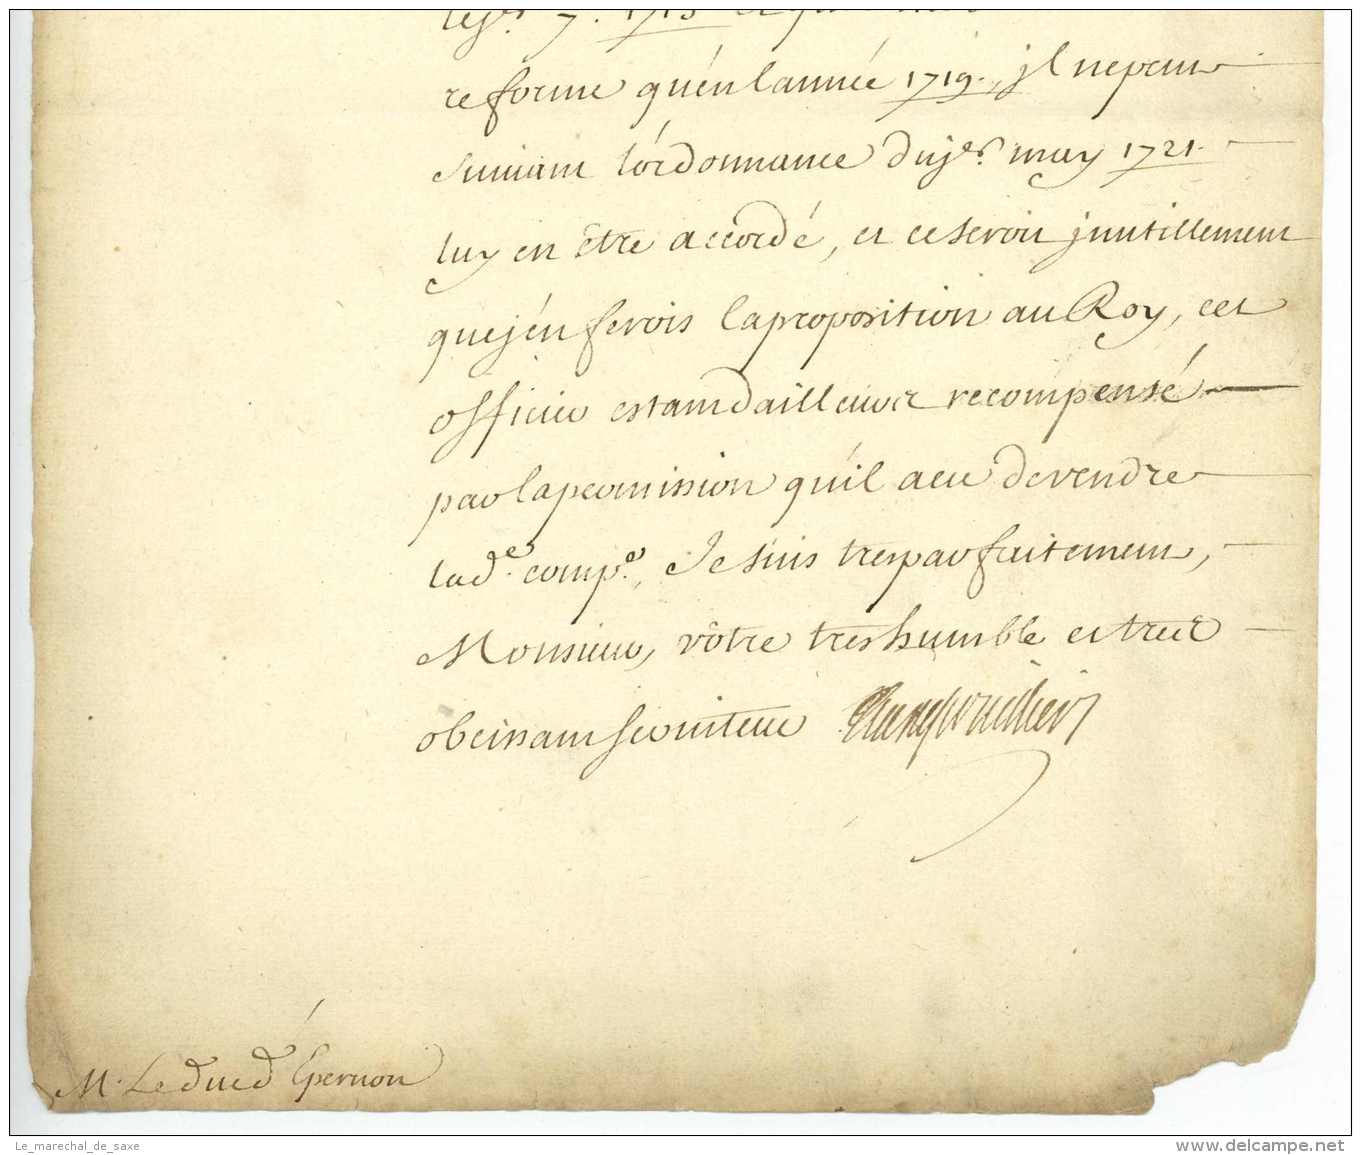 7. 1715
reforme qu'en lannée 1719. jl ne peut
suivant l'ordonnance du jer. may 1721.
luy en être accordé, et ce seroit jnutillement
que j'en ferois la proposition au Roy, cet
officier estant dailleurs recompensé
par la permission qu'il a eu de vendre
lad.e comp.e, Je suis tres parfaitement,
Monsieur, vôtre tres humble et tres
obeissant serviteur
M. Le duc d'Épernon
Le_marechal_de_saxe
www.delcampe.net